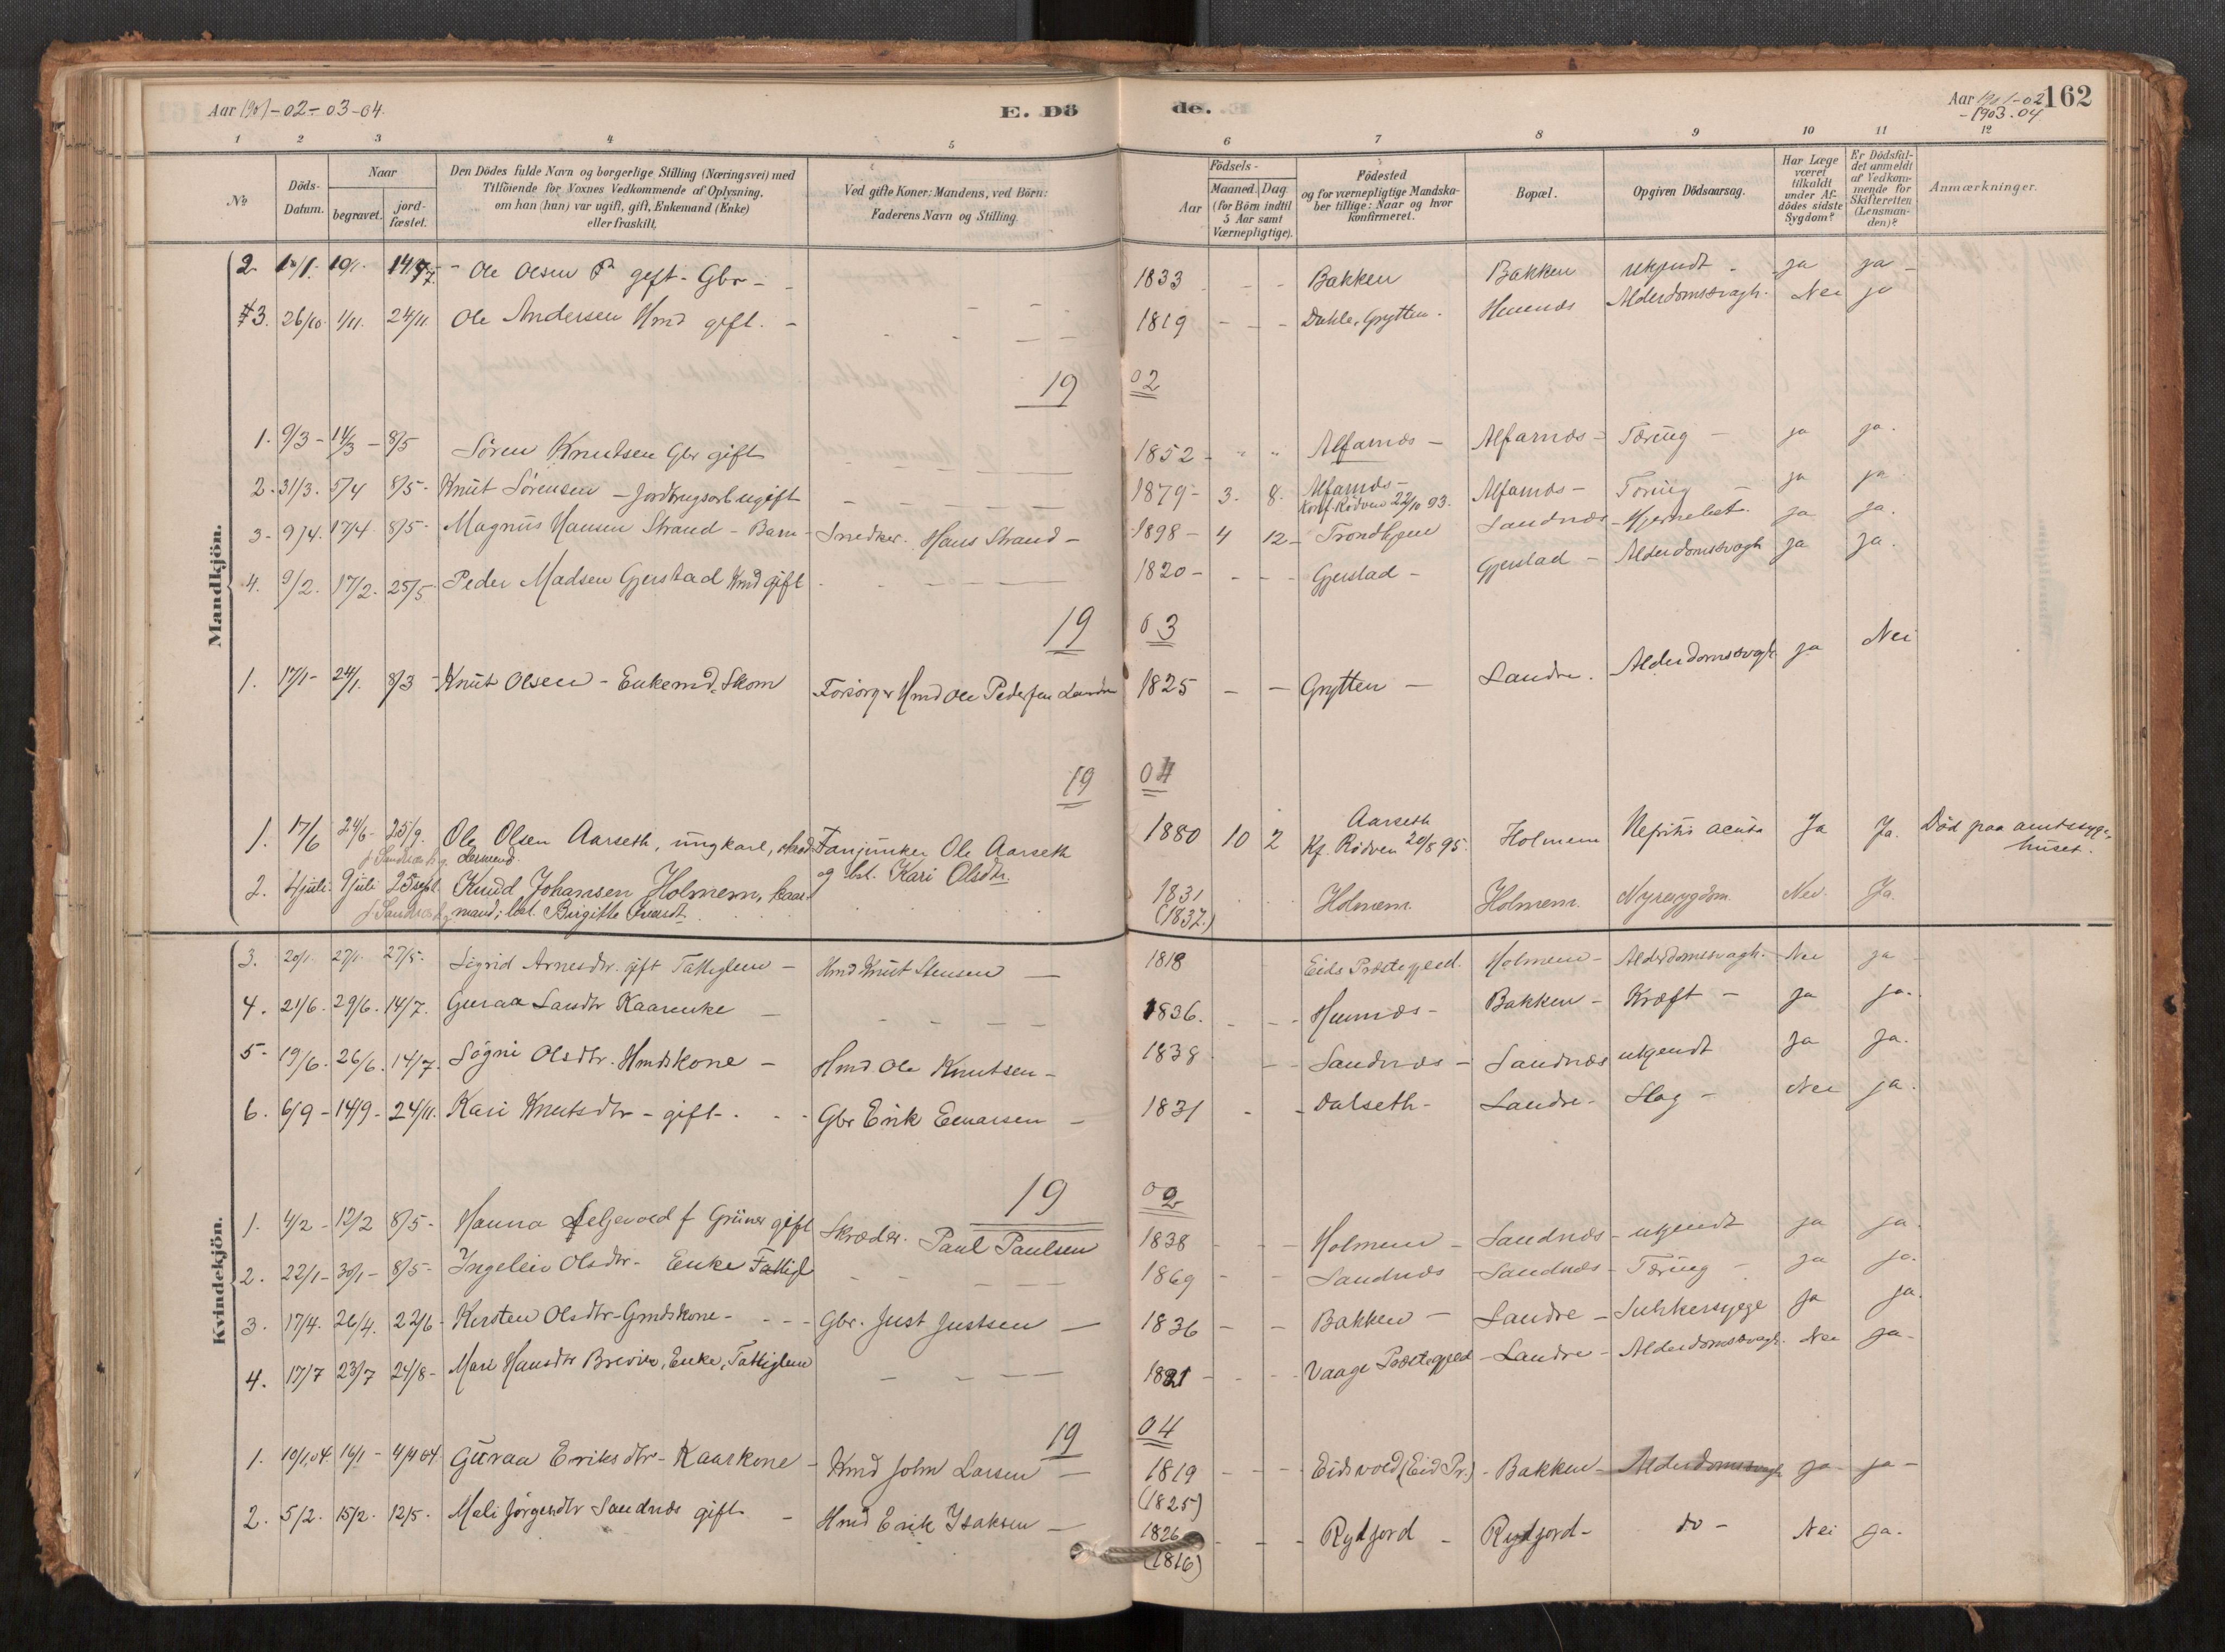 Aar 1901-02-03-04.
E. Dö
de.
Aar 1901-02 162
-1903.04
1 2 3 4 5 6 7 8 9 10 11 12
№
Döds-Datum.
Naar
begravet.
jord-fæstet.
Den Dödes fulde Navn og borgerlige Stilling (Næringsvei) med
Tilföiende for Voxnes Vedkommende af Oplysning,
om han (hun) var ugift, gift, Enkemand (Enke)
eller fraskilt,
Ved gifte Koner: Mandens, ved Börn:
Faderens Navn og Stilling.
Födsels-
Aar
Maaned. Dag
(for Börn indtil
5 Aar samt
Værnepligtige).
Födested
og for værnepligtige Mandska-
ber tillige: Naar og hvor
konfirmeret.
Bopæl.
Opgiven Dödsaarsag.
Har Læge
været
tilkaldt
under Af-
dödes sidste
Sygdom?
Er Dödsfal-
det anmeldt
af Vedkom-
mende for
Skifteretten
(Lensman-
den)?
Anmærkninger.
Mandkjön.
2. 19/1. Ole Olsen gift - Gbr - 1833 - - Bakken Bakken ukjendt - ja ja -
3. 26/10. 1/11. 24/11. Ole Andersen Hmd gift. - 1819 - - - Dahle, Grytten. Huunæs Alderdomssvagh. Nei ja
19 02
1. 9/3 - 14/3 - 8/5 Sören Knutsen Gbr gift 1852 - " " Alfarnæs - Alfarnæs - Tæring - ja ja.
2. 31/3. 5/4 8/5 - Knut Sörensen - Jordbrugsarb ugift 1879 - 3. 8. Alfarnæs - Alfarnæs - Tæring - ja ja
Konf. Rödven 22/10 93.
3 - 9/4. 17/4. 8/5 - Magnus Hansen Strand - Barn - Snedker. Hans Strand - 1898 - 4 12 - Trondhjem Sandnæs - Hjernebet. ja ja.
4. 9/2. 17/2. 25/5 Peder Madsen Gjerstad Kmd gift 1820 - - - - Gjerstad - Gjerstad - Alderdomssvagh ja ja.
19 03
1. 17/1 - 24/1. 8/3 - Knut Olsen - Enkemd. Skom Forsörger Hmd Ole Pedersen Landre 1825 - - Grytten - Landre. Alderdomssvagh. ja Nei
19 04
1. 17/6 24/6 - 25/9. Ole Olsen Aarseth, ungkarl, Fanjunker Ole Aarseth 1880 10 2 Aarseth Holmem Nefritis acuta Ja Ja. Död paa amtssyge-
og hst. Kari Olsdtr. Kf. Rödven 20/8 95. huset.
2. 4 juli. 9 juli 25 sept. Knud Johansen Holmem, kaar- 1831 Holmem. Holmem. Nyresygdom. Nei. Ja.
mand; hst. Birgitte (1837.)
Kvindekjön.
3. 20/1. 27/1. 27/5. Sigrid Arnesdtr. gift Fattiglem - Hmd Knut Stensen - 1818 Eids Præstegjeld. Holmem - Alderdomssvagh. Nei ja
4. 21/6. 29/6. 14/7. Guraa Larsdtr Kaarenke - 1836. - - - Huunæs - Bakken - Kræft - ja ja.
5 - 19/6. 26/6. 14/7. Sögni Olsdtr. Hmdskone - Hmd. Ole Knutsen - 1838 - - Sandnæs - Sandnæs ukjendt ja ja.
6. 6/9 - 14/9 - 24/11. Kari Knutsdtr - gift - . - - Gbr Erik Einarsen - 1831 - - Dalseth - Landre - Slag - Nei ja.
19 02
1. 4/2 - 12/2 8/5 - Hanna Seljevold f Grüner gift Skræder. Paul Paulsen 1838 - - - Holmem - Sandnæs - ukjendt ja ja.
2. 22/1 - 30/1 - 8/5 - Ingelein Olsdtr - Enke Fattigl 1869 - - Sandnæs Sandnæs - Tæring - ja ja.
3. 17/4. 26/4. 22/6 - Kersten Olsdtr - Gmdskone - - - - Gbr. Just Justsen - 1836 - - Bakken - Landre - Sukkersyge ja ja.
4. 17/7 23/7 24/8 - Mari Hansdtr Brevik, Enke, Fattiglem 1821 - - - - Vaage Præstegjeld - Landre - Alderdomssvagh. Nei ja -
19 04
1. 10/1.04. 16/1 - 4/4 04. Guraa Eriksdtr - Kaarkone - Kmd John Larsen - 1819 - - - Eidsvold (Eid Pr.) - Bakken - Alderdomssvagh ja ja -
(1825)
2. 5/2. 15/2. 12/5. Mali Jörgensdtr Sandnæs gift - Hmd Erik Isaksen - 1826 - - - Rydjord - Rydjord - do - Nei ja.
(1816)